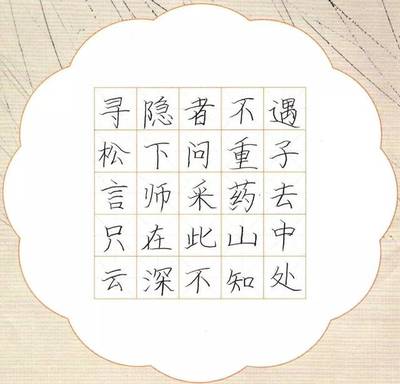 寻隐者不遇
松下问重子
言师采药去
只在此山中
云深不知处